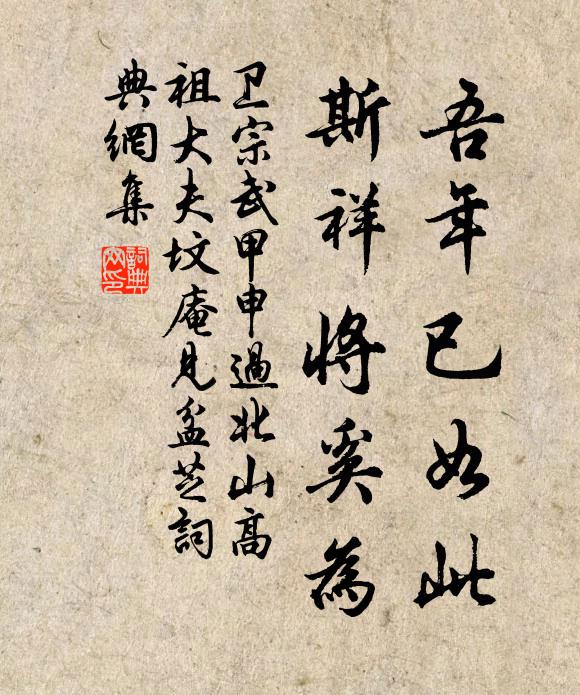 吾年已如此
斯祥将奚為
卫宗武甲申過北山高
祖大夫坟庵見盆芝詞
典網集
詞典
网印